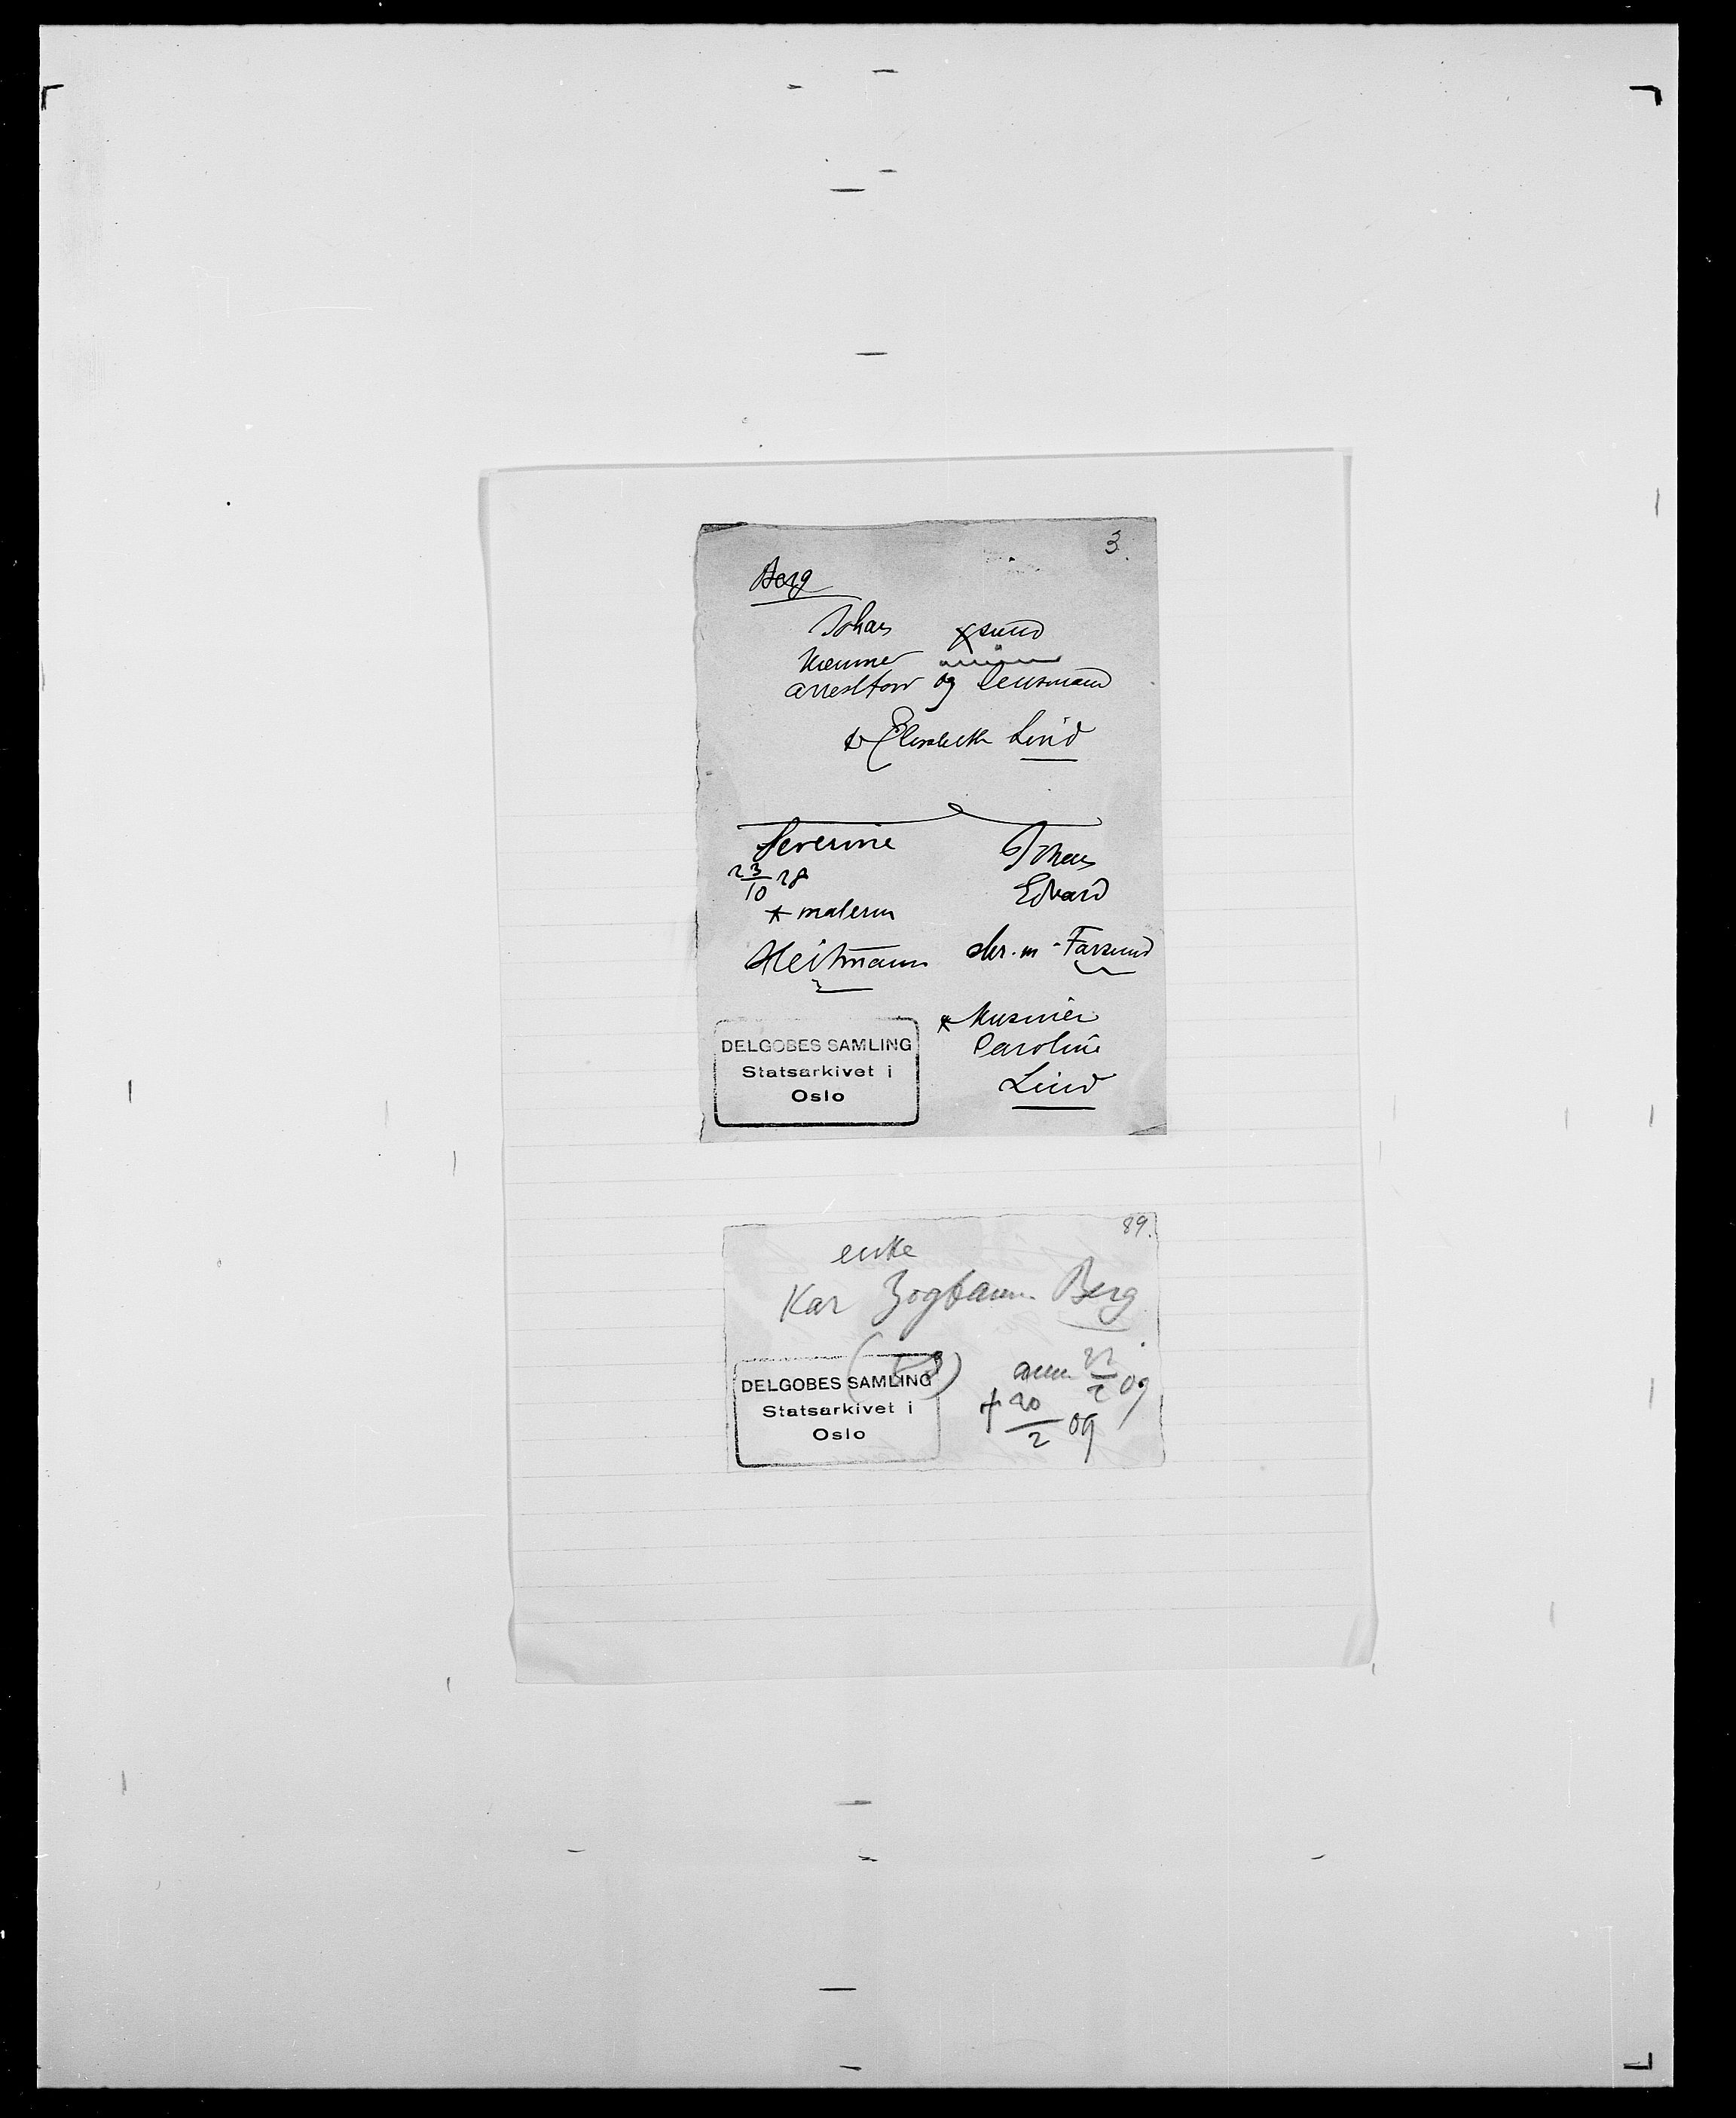 3.
Berg
Johan
Kæmner
arrestfor og lensmand
Elisabeth Lind
Severine
23/10 28
* maleren
Heitmann
Johan
Edvard
skr. m - Farsund
*
Caroline
Lind
DELGOBES SAMLING
Statsarkivet i
Oslo
89.
enke
Kar Zogbaum Berg
ann 22/2 09
† 20/2 09
DELGOBES SAMLING
Statsarkivet i
Oslo